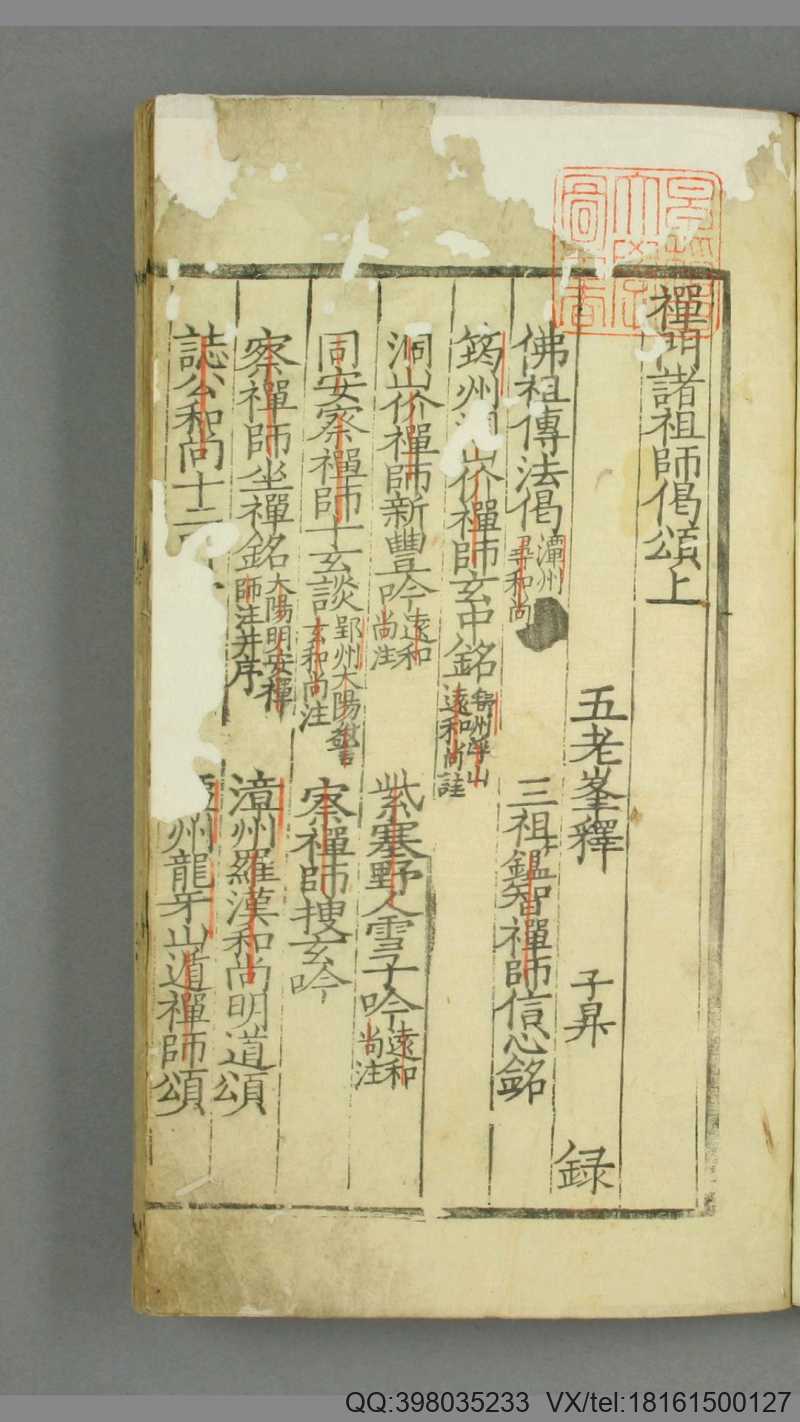 禪門諸祖師偈頌上
五老峯釋 子昇 録
佛祖傳法偈 潭州 和尚 三祖鑑智禪師信心銘
筠州洞山价禪師玄中銘 舒州浮山遠和尚註
洞山价禪師新豐吟 遠和尚注 紫塞野人雪子吟 遠和尚注
同安察禪師十玄談 郢州大陽警玄和尚注 察禪師搜玄吟
察禪師坐禪銘 大陽明安禪師注并序 漳州羅漢和尚明道頌
誌公和尚十二 州龍牙山遁禪師頌
QQ:398035233 VX/tel:18161500127